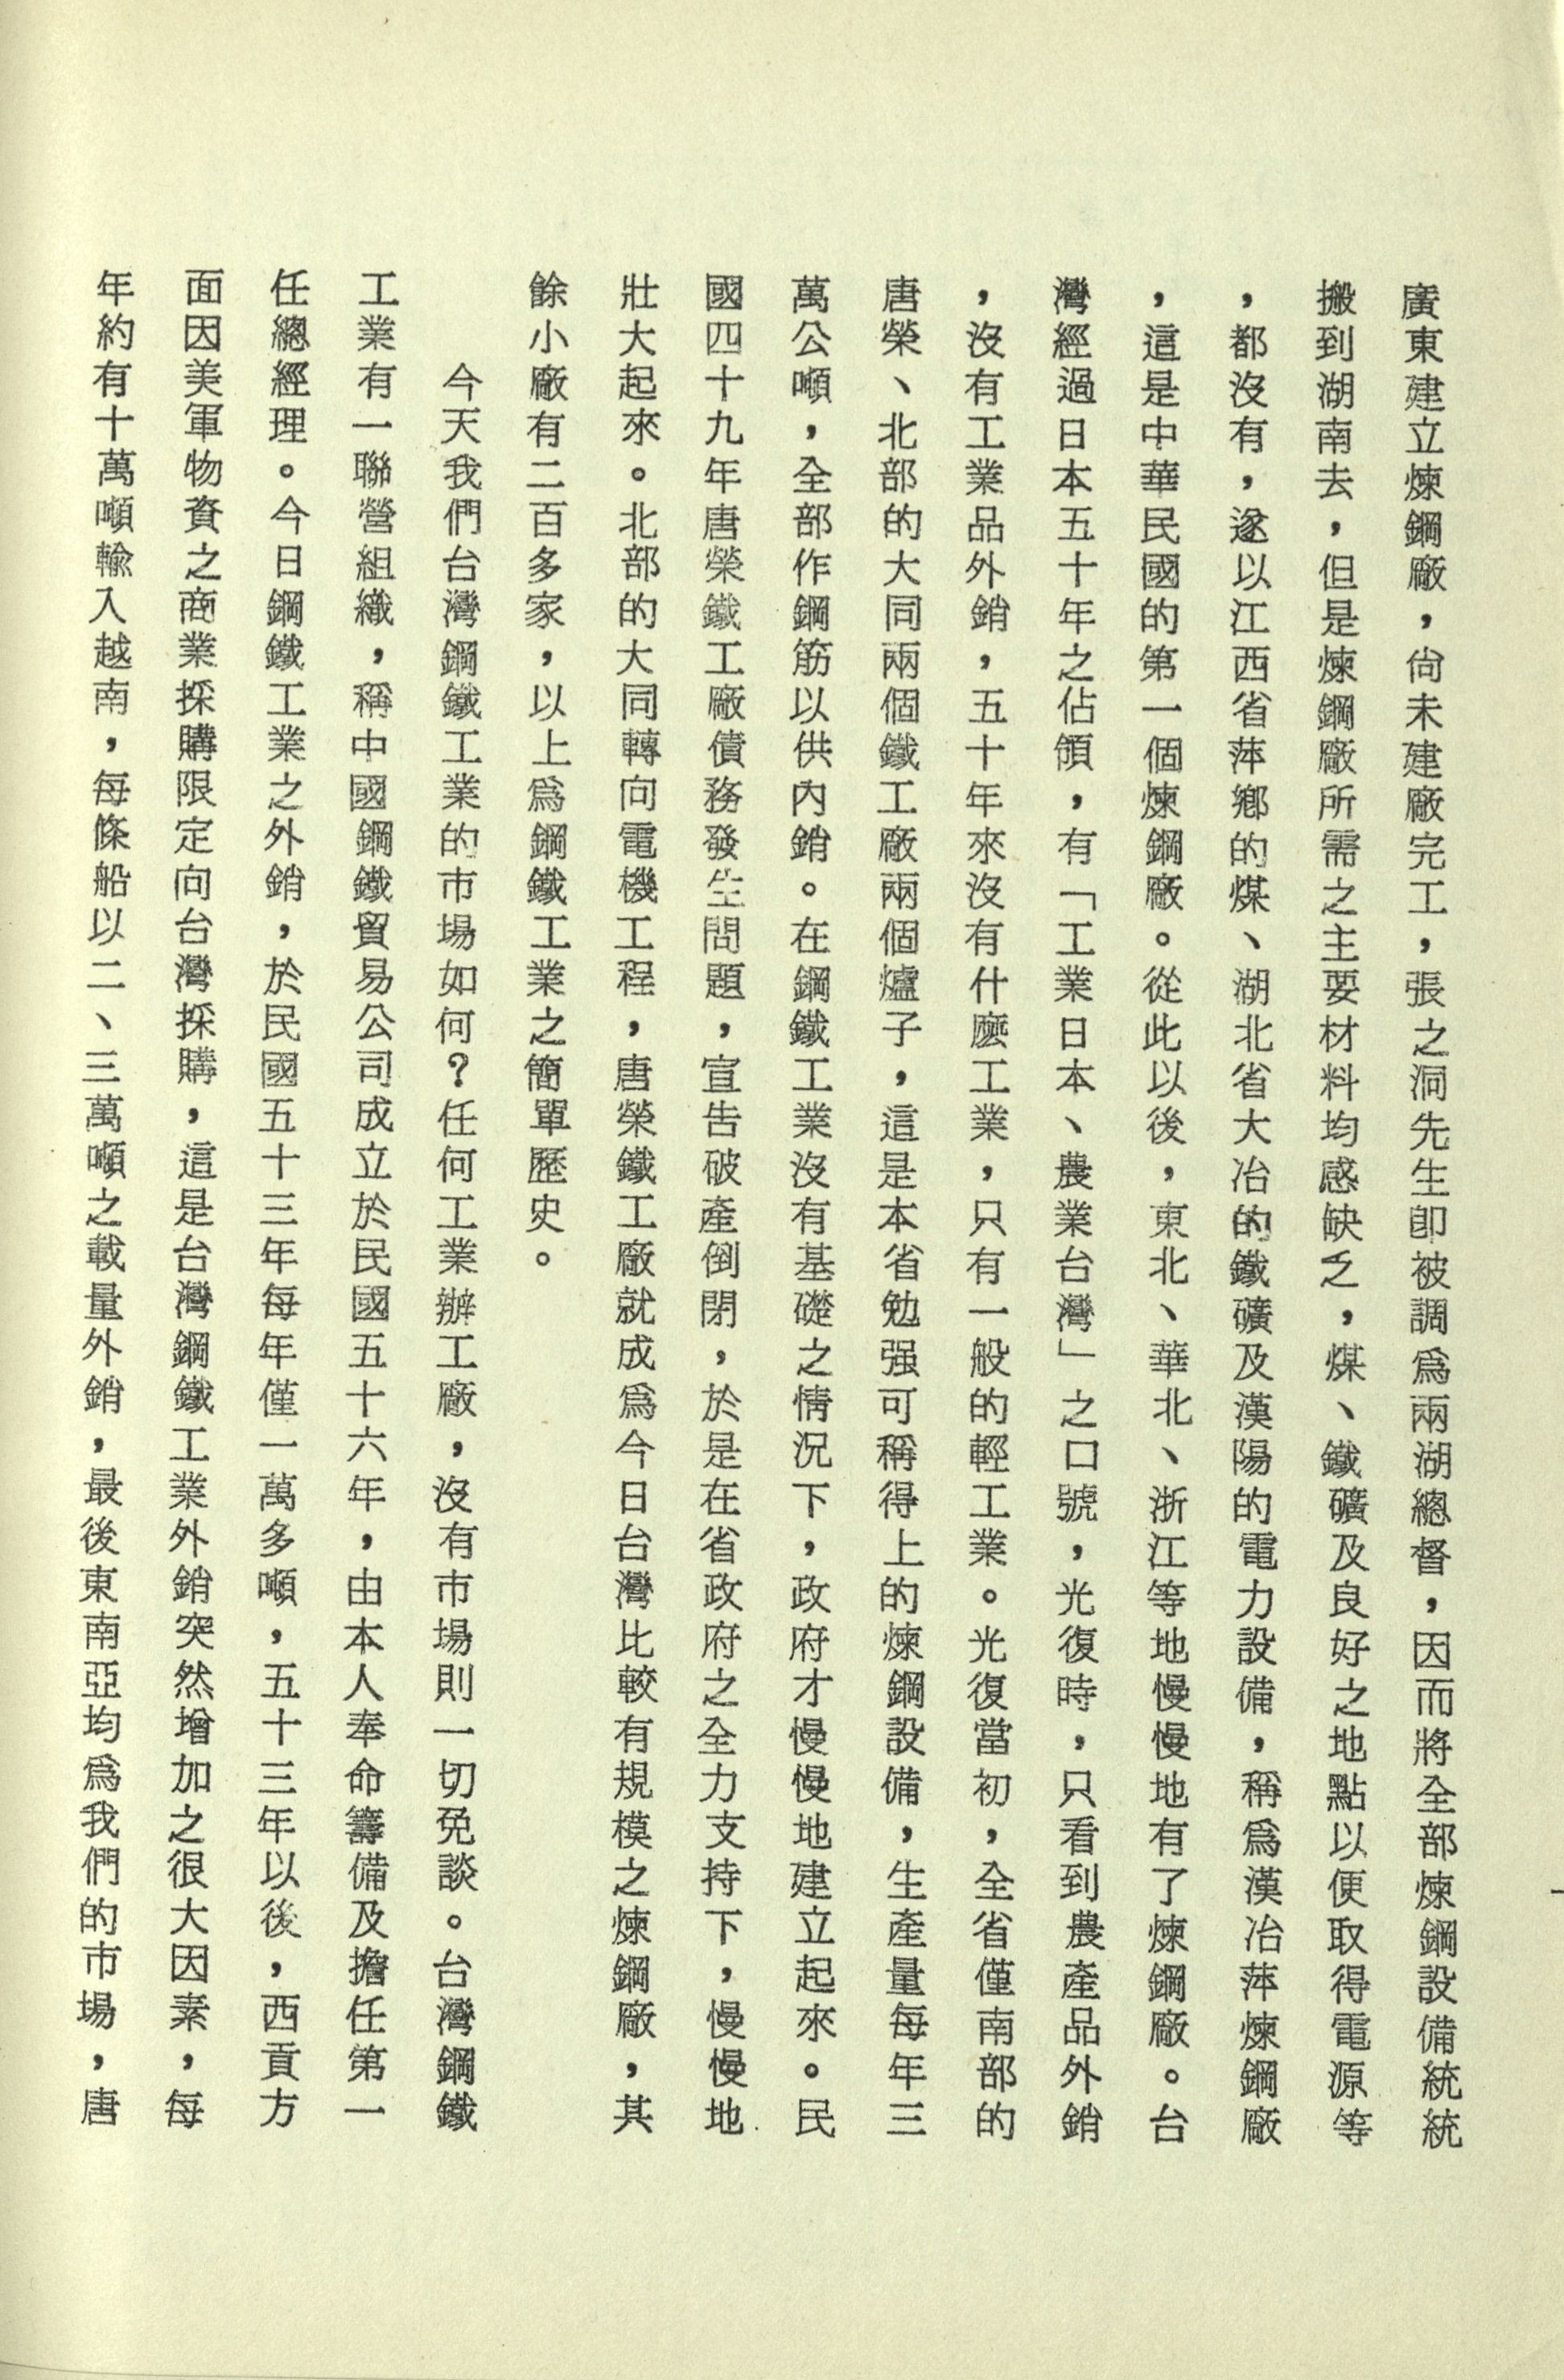 廣東建立煉鋼廠，尙未建廠完工，張之洞先生卽被調爲兩湖總督，因而將全部煉鋼設備統統
搬到湖南去，但是煉鋼廠所需之主要材料均感缺乏，煤、鐵礦及良好之地點以便取得電源等
，都沒有，遂以江西省萍鄉的煤、湖北省大冶的鐵礦及漢陽的電力設備，稱爲漢冶萍煉鋼廠
，這是中華民國的第一個煉鋼廠。從此以後，東北、華北、浙江等地慢慢地有了煉鋼廠。台
灣經過日本五十年之佔領，有「工業日本、農業台灣」之口號，光復時，只看到農產品外銷
，沒有工業品外銷，五十年來沒有什麼工業，只有一般的輕工業。光復當初，全省僅南部的
唐榮、北部的大同兩個鐵工廠兩個爐子，這是本省勉强可稱得上的煉鋼設備，生產量每年三
萬公噸，全部作鋼筋以供內銷。在鋼鐵工業沒有基礎之情況下，政府才慢慢地建立起來。民
國四十九年唐榮鐵工廠債務發生問題，宣告破產倒閉，於是在省政府之全力支持下，慢慢地
壯大起來。北部的大同轉向電機工程，唐榮鐵工廠就成爲今日台灣比較有規模之煉鋼廠，其
餘小廠有二百多家，以上爲鋼鐵工業之簡單歷史。
今天我們台灣鋼鐵工業的市場如何？任何工業辦工廠，沒有市場則一切免談。台灣鋼鐵
工業有一聯營組織，稱中國鋼鐵貿易公司成立於民國五十六年，由本人奉命籌備及擔任第一
任總經理。今日鋼鐵工業之外銷，於民國五十三年每年僅一萬多噸，五十三年以後，西貢方
面因美軍物資之商業採購限定向台灣採購，這是台灣鋼鐵工業外銷突然增加之很大因素，每
年約有十萬噸輸入越南，每條船以二、三萬噸之載量外銷，最後東南亞均爲我們的市場，唐